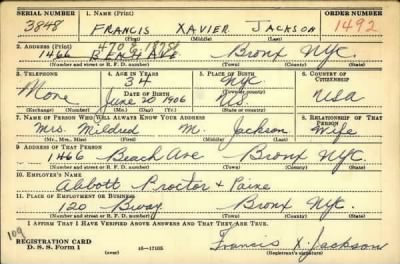 SERIAL NUMBER 1. NAME (Print) ORDER NUMBER
3848 FRANCIS XAVIER JACKSON 1492
(First) (Middle) (Last)
2. ADDRESS (Print)
1466 BEACH AVE Bronx NYC.
(Number and street or R. F. D. number) (Town) (County) (State)
3. TELEPHONE 4. AGE IN YEARS 5. PLACE OF BIRTH 6. COUNTRY OF CITIZENSHIP
34 NYC.
DATE OF BIRTH (Town or county)
None June 20 1906 US. USA
(Exchange) (Number) (Mo.) (Day) (Yr.) (State or country)
7. NAME OF PERSON WHO WILL ALWAYS KNOW YOUR ADDRESS 8. RELATIONSHIP OF THAT PERSON
Mrs. Mildred M. Jackson Wife
(Mr., Mrs., Miss) (First) (Middle) (Last)
9. ADDRESS OF THAT PERSON
1466 Beach Ave Bronx NYC.
(Number and street or R. F. D. number) (Town) (County) (State)
10. EMPLOYER'S NAME
Abbott Proctor + Paine
11. PLACE OF EMPLOYMENT OR BUSINESS
120 Bway. Bronx NYC.
(Number and street or R. F. D. number) (Town) (County) (State)
I AFFIRM THAT I HAVE VERIFIED ABOVE ANSWERS AND THAT THEY ARE TRUE.
109
REGISTRATION CARD
D. S. S. Form 1 (over) 16-17105 Francis X. Jackson
(Registrant's signature)